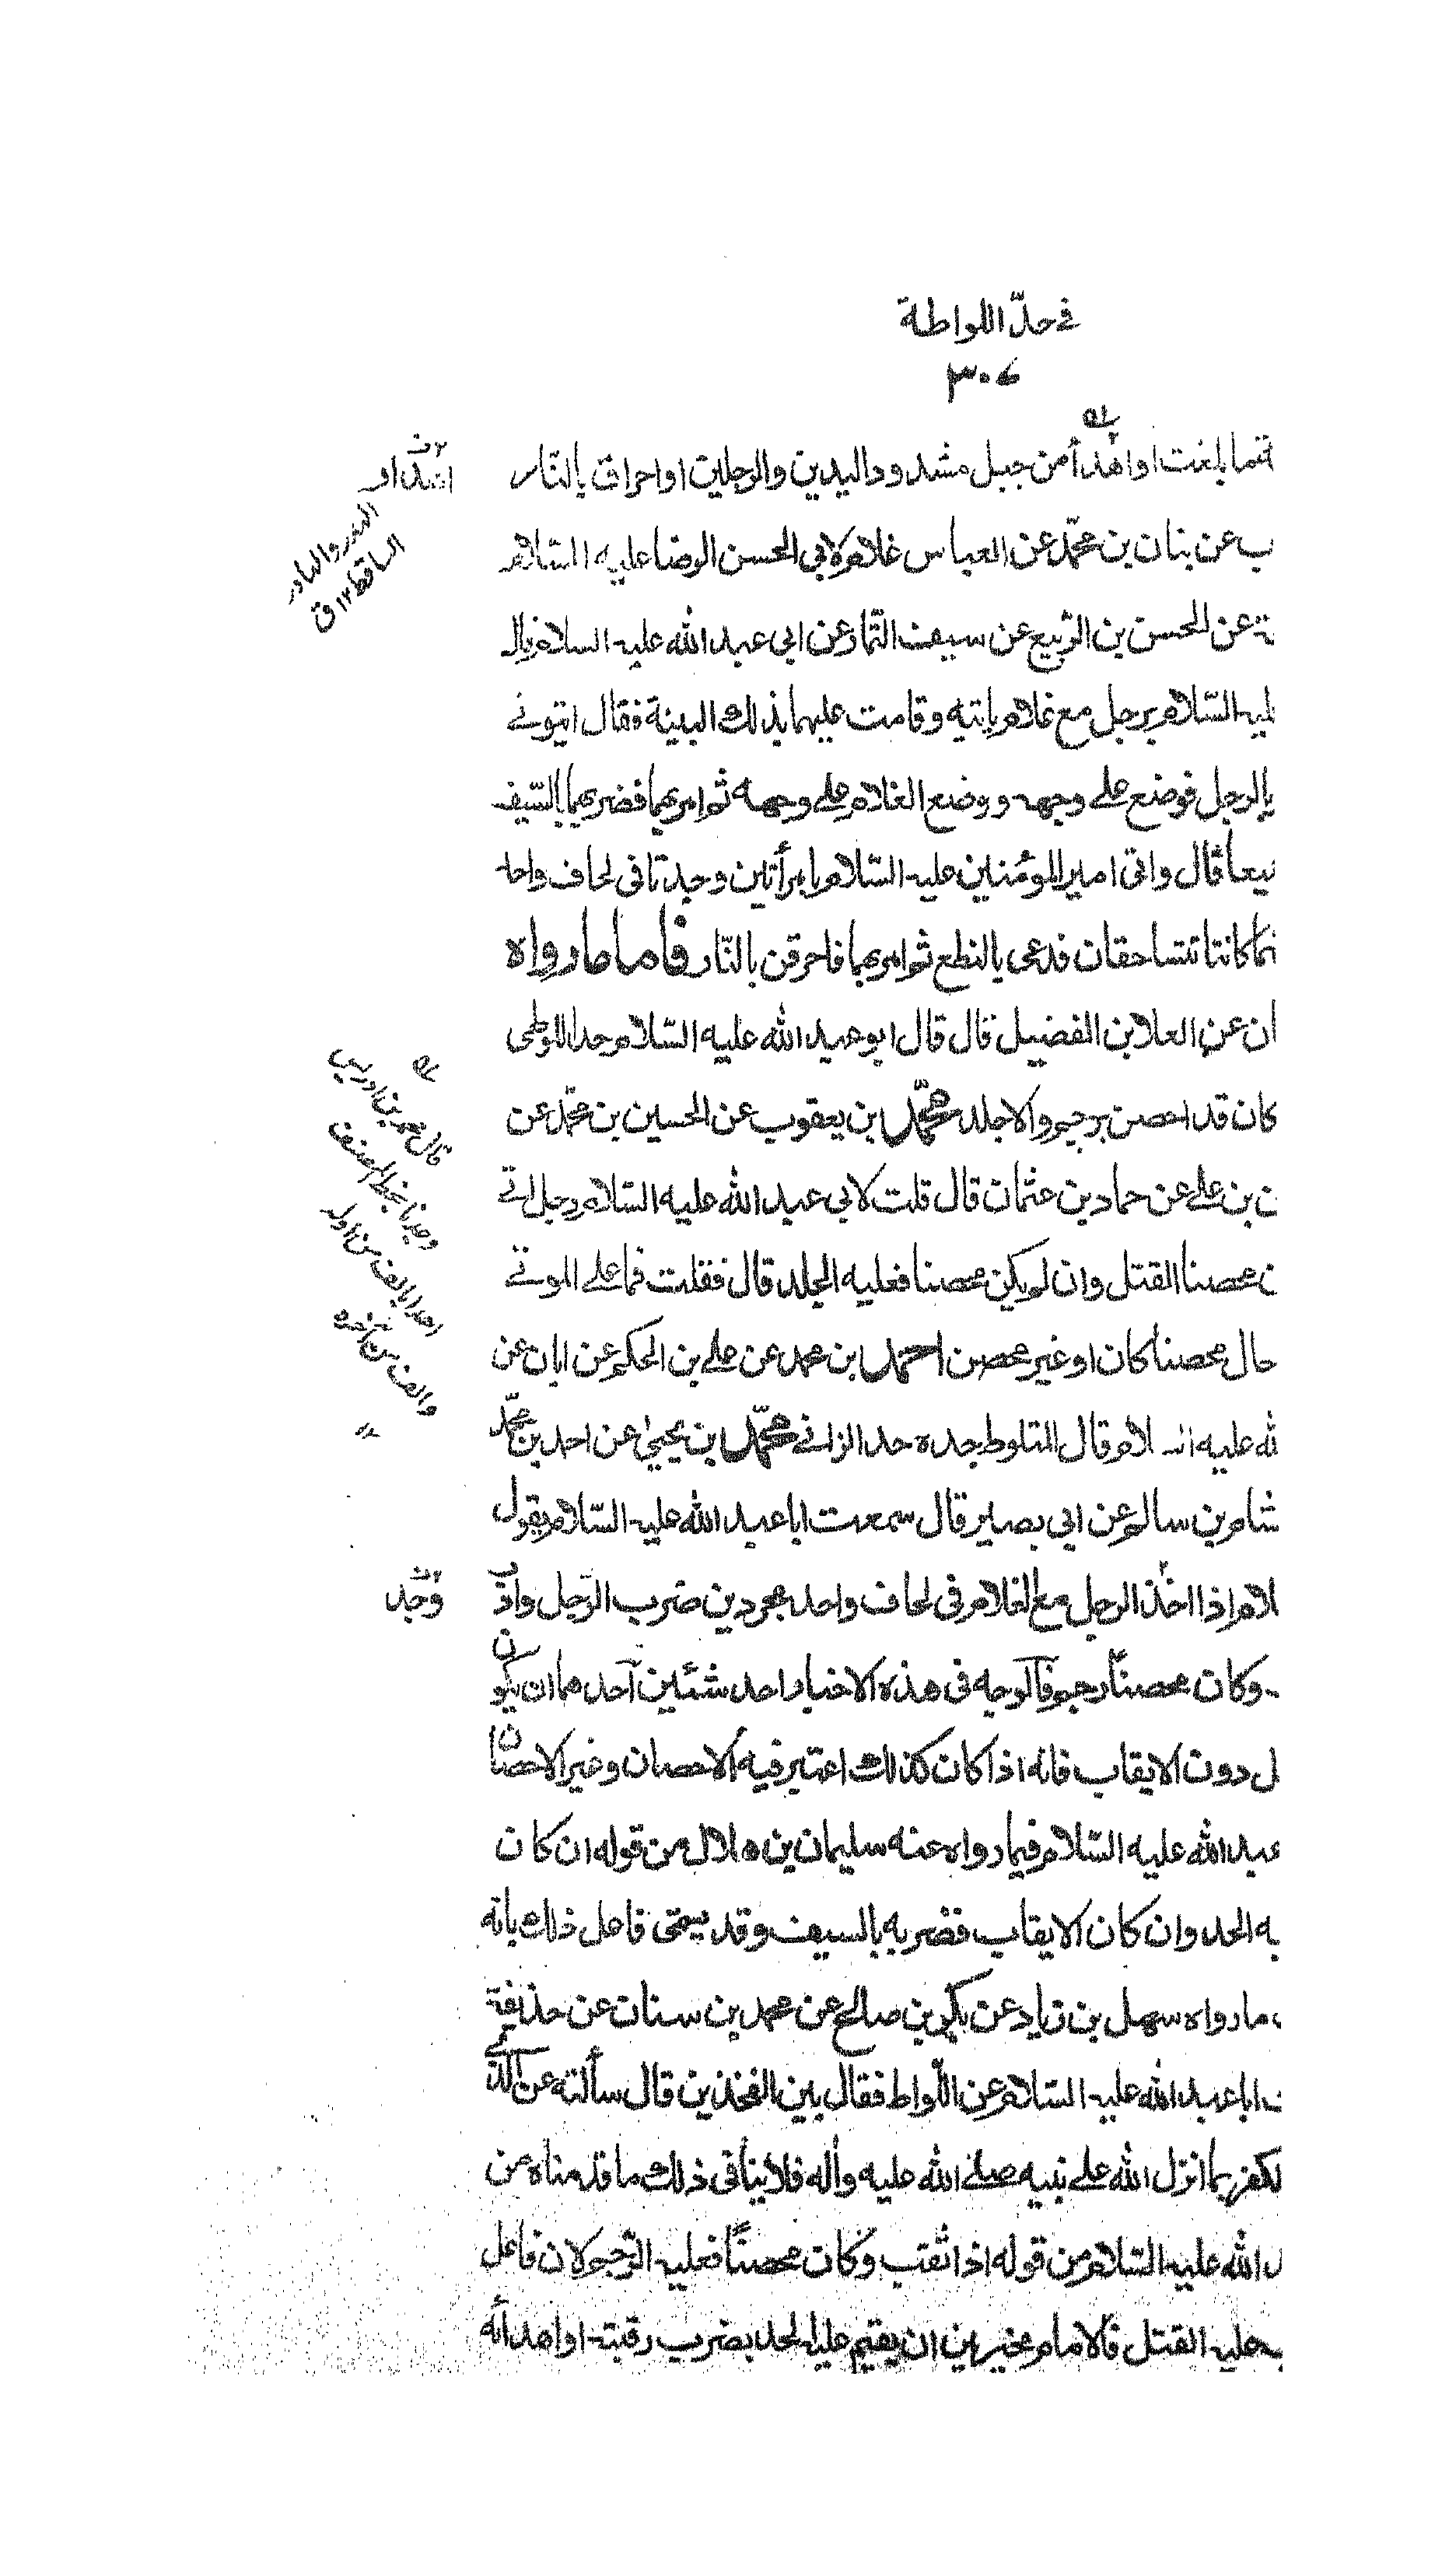 في حدّ اللواطة
٣٠٧
ما بلغت او اهدأ من جبل مشدود اليدين والرجلين او احراق بالنّار
ب عن بنان بن محمّد عن العباس غلام لابي الحسن الرضا عليه السّلام
عن الحسن بن الرّبيع عن سيف التّمار عن ابي عبد الله عليه السلام قال
السّلام برجل مع غلام ياتيه وقامت عليهما بذلك البينة فقال ايتوني
بالرجل فوضع على وجهه ووضع الغلام على وجهه ثم امر بهما فضربهما بالسّيف
قال واتى امير المؤمنين عليه السّلام بامرأتين وجدتا في لحاف واحد
كانتا تتساحقان فدعى بالنطع ثم امر بهما فاحرقن بالنّار فاما ما رواه
ان عن العلا بن الفضيل قال قال ابو عبد الله عليه السّلام حد اللوطى
كان قد احصن رجم والا جلد محمّد بن يعقوب عن الحسين بن محمّد عن
ن بن علي عن حماد بن عثمان قال قلت لابي عبد الله عليه السّلام رجل اتى
ن محصنا القتل وان لم يكن محصنا فعليه الجلد قال فقلت فما على الموتى
حال محصنا كان او غير محصن احمد بن محمد عن علي بن الحكم عن ابان عن
لله عليه السلام قال المتلوط حده حد الزاني محمّد بن يحيى عن احمد بن محمّد
شام بن سالم عن ابي بصير قال سمعت ابا عبد الله عليه السّلام يقول
لام اذا اخذ الرجل مع الغلام في لحاف واحد مجردين ضرب الرّجل وادّب
وكان محصنا رجم فالوجه في هذه الاخبار احد شئين احدهما ان يكون
ل دون الايقاب فانه اذا كان كذلك اعتبر فيه الاحصان وغير الاحصان
عبد الله عليه السّلام فيما رواه عنه سليمان بن هلال من قوله ان كان
به الحد وان كان الايقاب فضربه بالسيف وقد يسمّى فاعل ذلك بانه
ما رواه سهل بن زياد عن بكر بن صالح عن محمد بن سنان عن حذيفة
ت ابا عبد الله عليه السّلام عن اللّواط فقال بين الفخذين قال سألته عن الذي
لكفر بما انزل الله على نبيه صلى الله عليه واله فلا ينافي ذلك ما قدمناه من
الله عليه السّلام من قوله اذا ثقب وكان محصنًا فعليه الرّجم لان فاعل
ب عليه القتل فالامام مخير بين ان يقيم عليه الحد بضرب رقبته او اهدائه
قال محمد بن ادريس
وجدنا بخط المصنف
اهدابا الف من اوله
والف من آخره
١٢
وجد